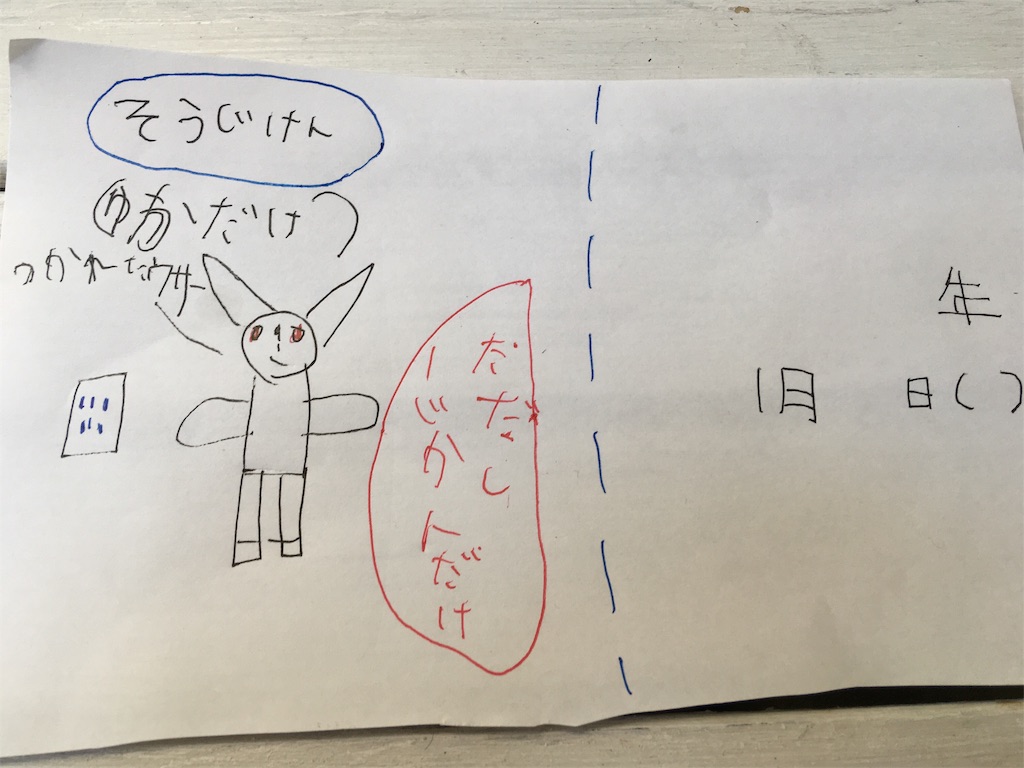 そうじけん
(ゆかだけ)
つかれたウサー
ただし
一じかんだけ
年
1月 日( )